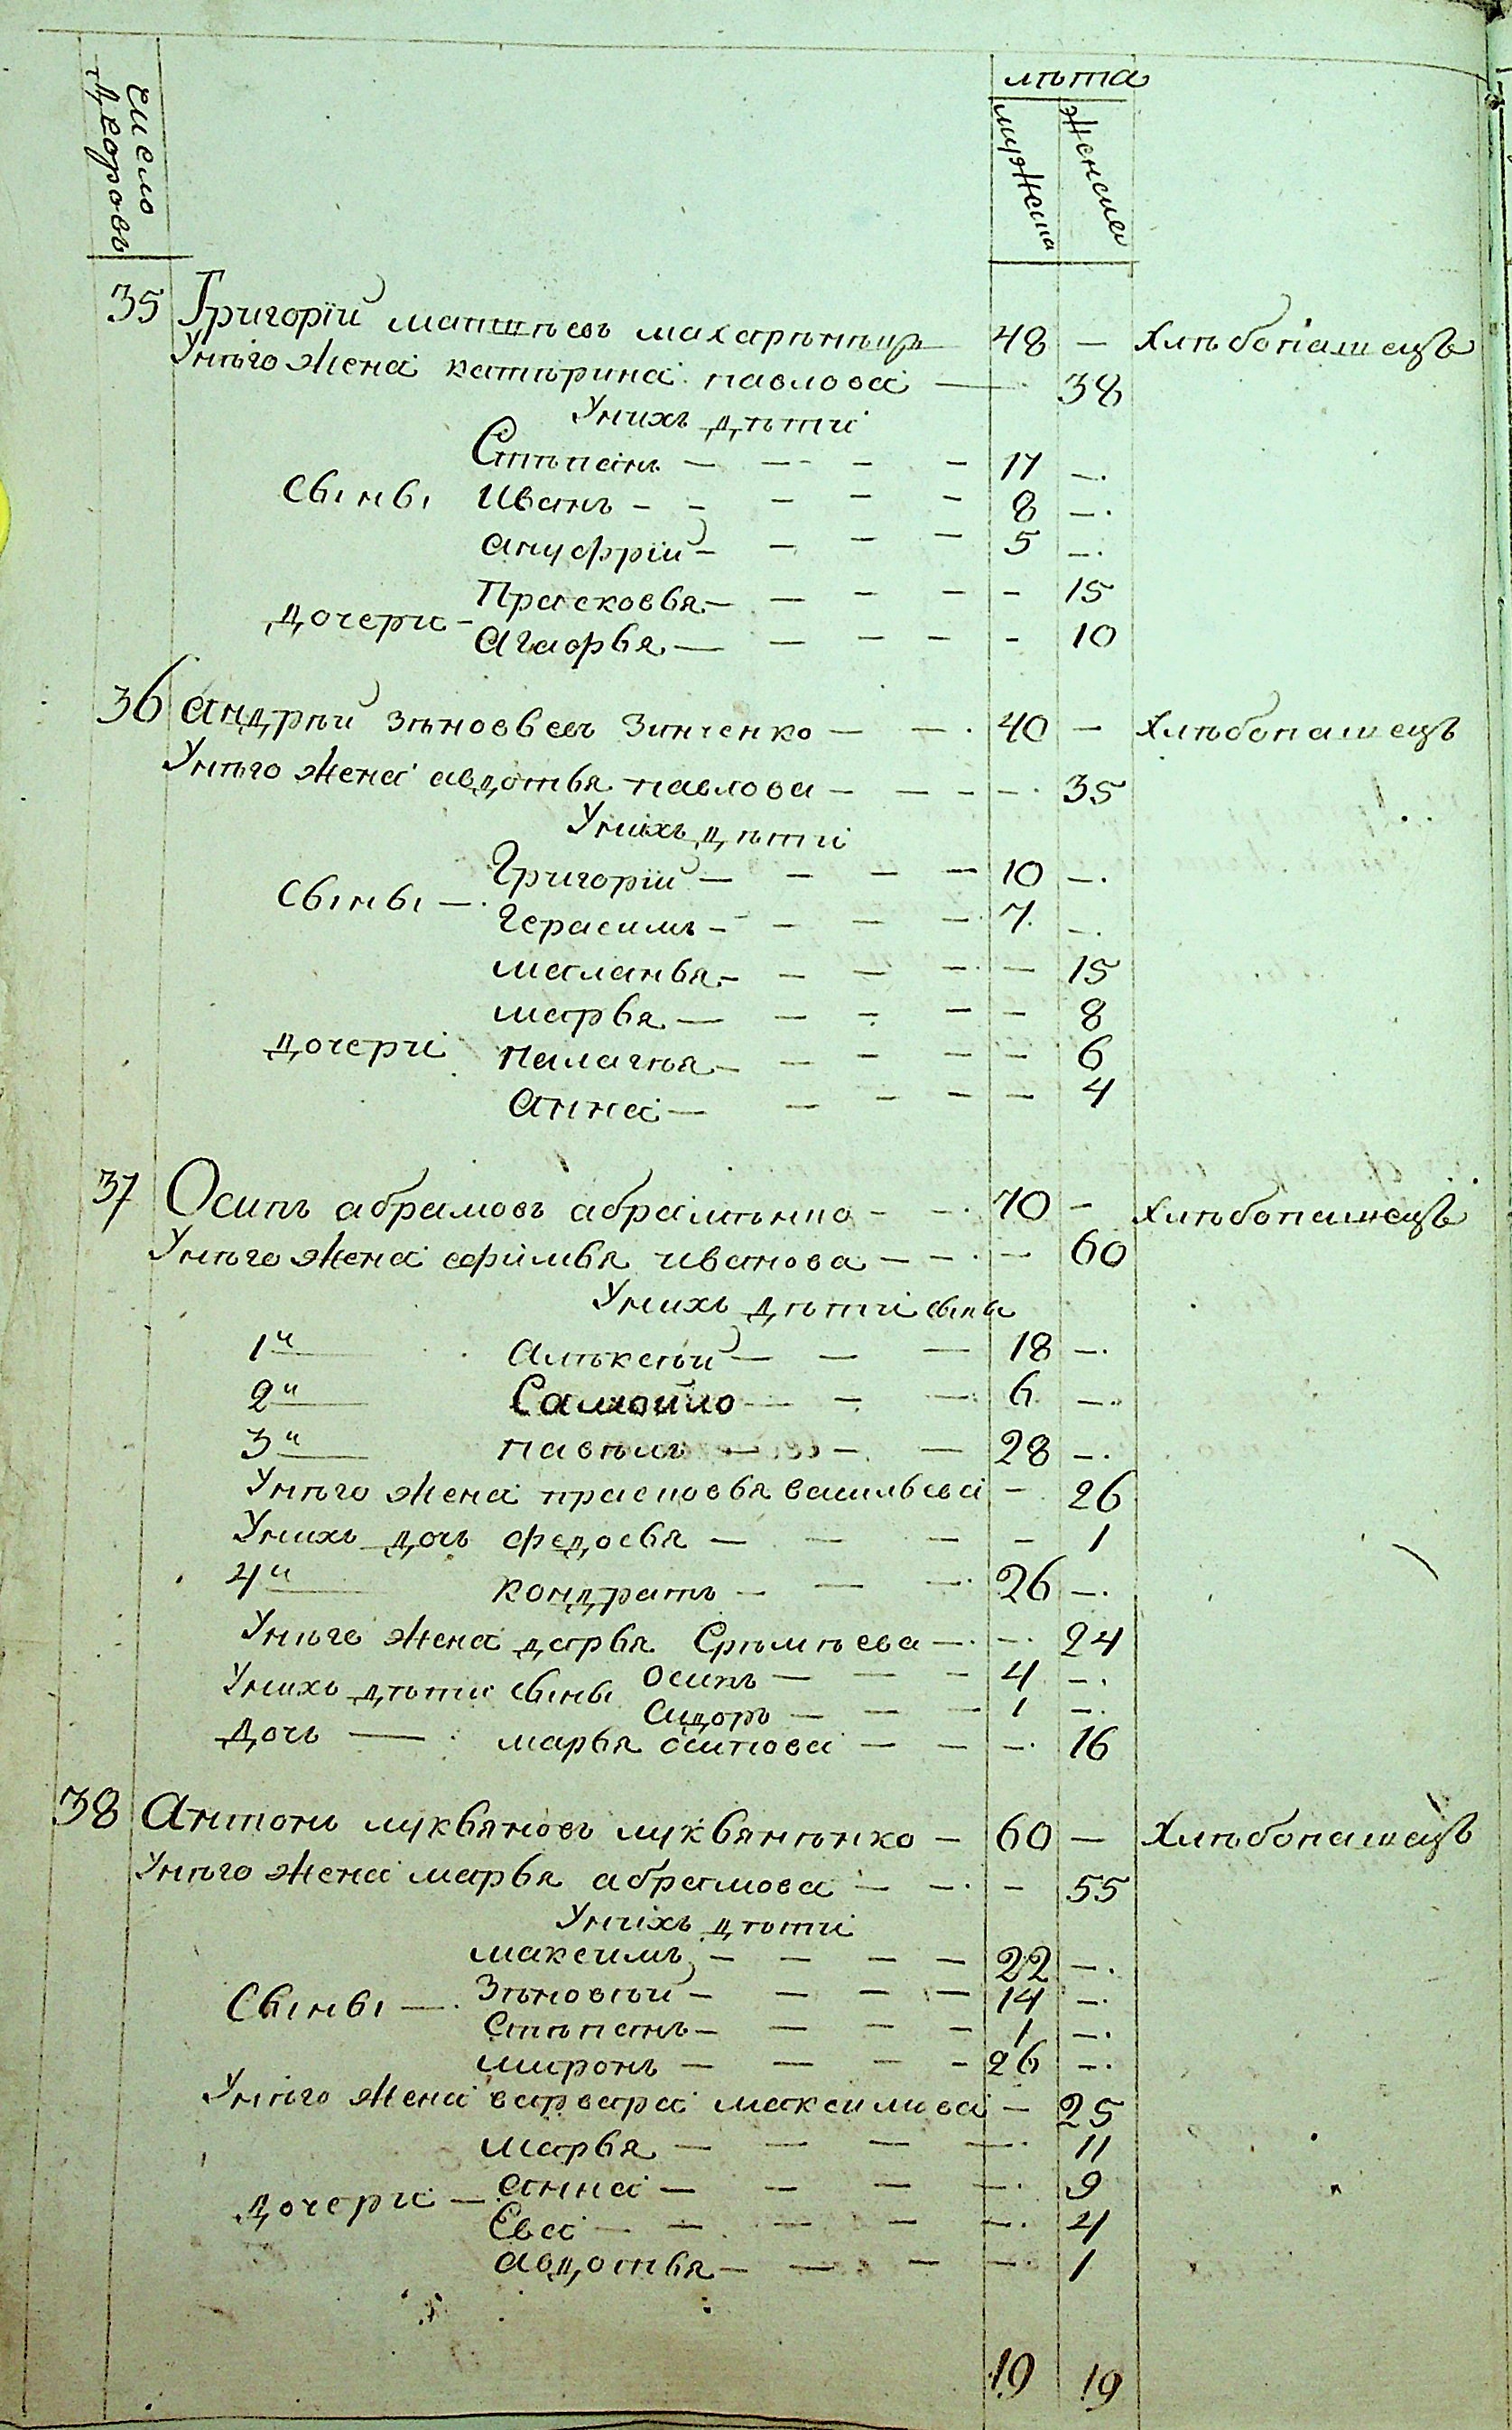 число дворовъ
лѣта
мужеска
женска
35 Григорїй матвѣевъ 48 — Хлѣбопашецъ
Унѣго жена катѣрина павлова — 38
Унихъ дѣти
Стѣпанъ — — — — 17 —
Сыны Иванъ — — — — 8 —
ануфрїй — — — — 5 —
Прасковья — — — — — 15
дочери — агафья — — — — — 10
36 андрѣй зѣновьевъ Зинченко — — 40 — Хлѣбопашецъ
Унѣго жена авдотья павлова — — — — 35
Унихъ дѣти
Григорїй — — — — 10 —
Сыны — герасимъ — — — — 7 —
маланья — — — — — 15
марья — — — — — 8
дочери пелагѣя — — — — — 6
анна — — — — — 4
37 Осипъ абрамовъ абрамѣнко — — 70 — Хлѣбопашецъ
Унѣго жена ефимья иванова — — — 60
Унихъ дѣти сыны
1й алѣксѣй — — — 18 —
2й Самойло — — — 6 —
3й павѣлъ — — — 28 —
Унѣго жена прасковья васильева — 26
Унихъ дочь федосья — — — — 1
4й кондратъ — — — 26 —
Унѣго жена дарья Ерѣмѣева — — 24
Унихъ дѣти сыны осипъ — — — 4 —
Сидоръ — — — 1 —
Дочь — марья осипова — — — 16
38 Антонъ лукьяновъ лукьянѣнко — 60 — Хлѣбопашецъ
Унѣго жена марья абрамова — — — 55
Унихъ дѣти
максимъ — — — — 22 —
Сыны — Зѣновѣй — — — — 14 —
Стѣпанъ — — — — 1 —
миронъ — — — — 26 —
Унѣго жена варвара максимова — 25
марья — — — — 11
дочери — анна — — — — 9
Ева — — — — — 4
авдотья — — — — 1
19 19